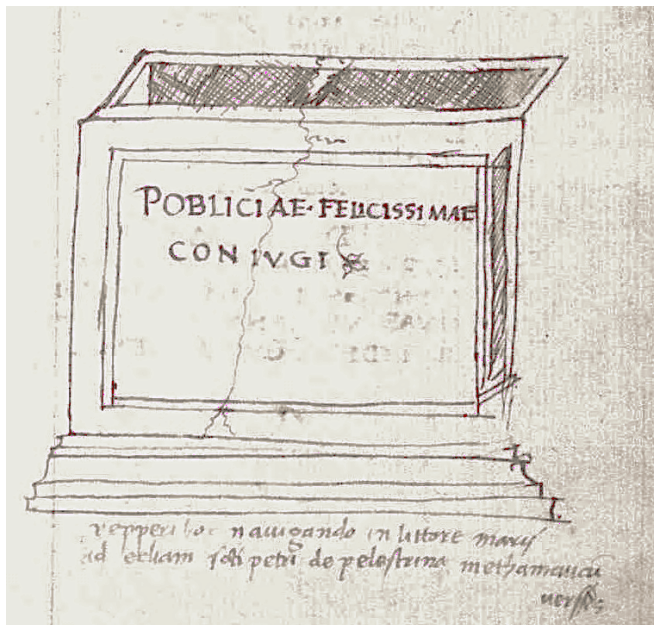 POBLICIAE · FELICISSIMAE
CONIVGI
repperi hoc nauigando in littore maris
ad ecliam scti petri de pelestrina
uersus